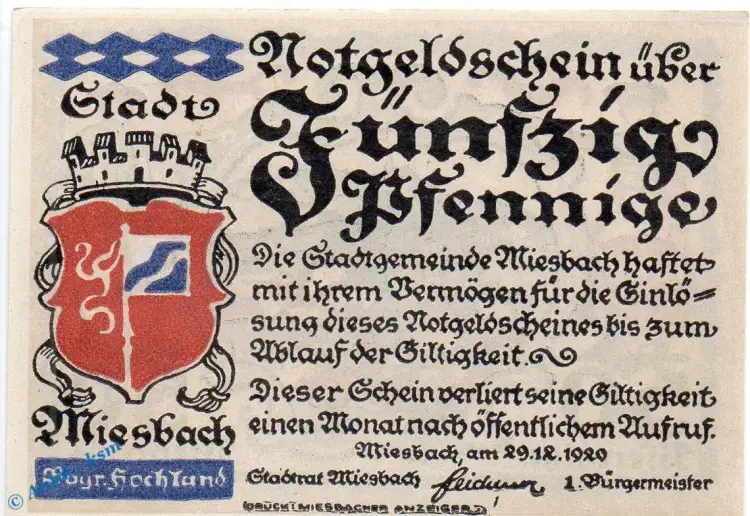 Stadt
Miesbach
Bayr. Hochland
Notgeldschein über
Fünfzig
Pfennige
Die Stadtgemeinde Miesbach haftet
mit ihrem Vermögen für die Einlö=
sung dieses Notgeldscheines bis zum
Ablauf der Giltigkeit.
Dieser Schein verliert seine Giltigkeit
einen Monat nach öffentlichem Aufruf.
Miesbach, am 29.12.1920
Stadtrat Miesbach 1. Bürgermeister
DRUCK: MIESBACHER ANZEIGER
©